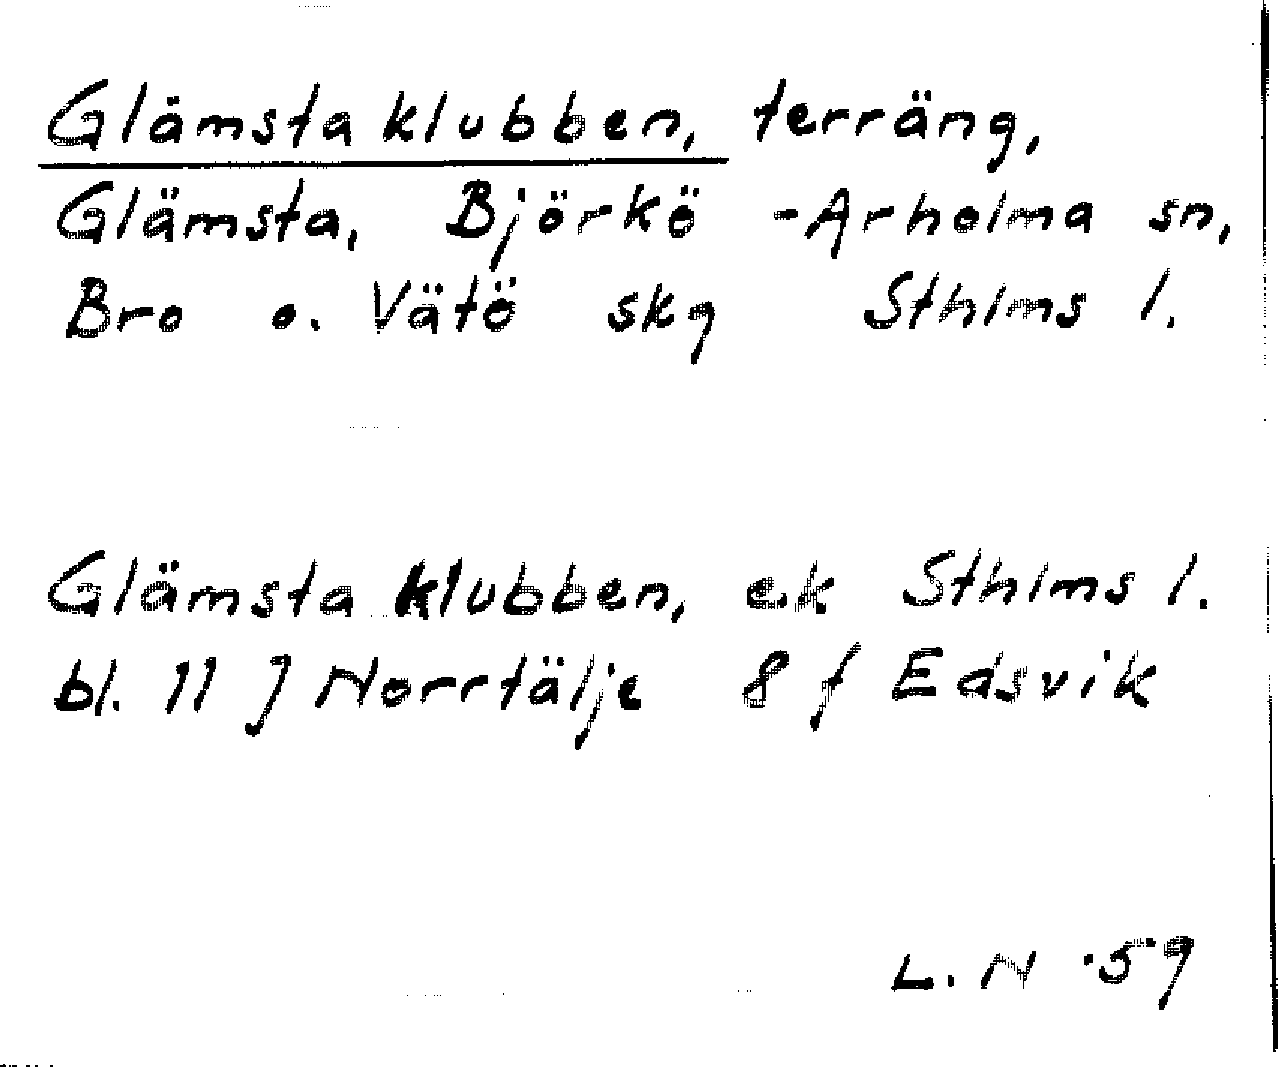 Glämsta klubben, terräng,
Glämsta, Björkö -Arholma sn,
Bro o. Vätö skg Sthlms l.
Glämsta klubben, e.k Sthlms l.
bl. 11 J Norrtälje 8 f Edsvik
L. N ·59